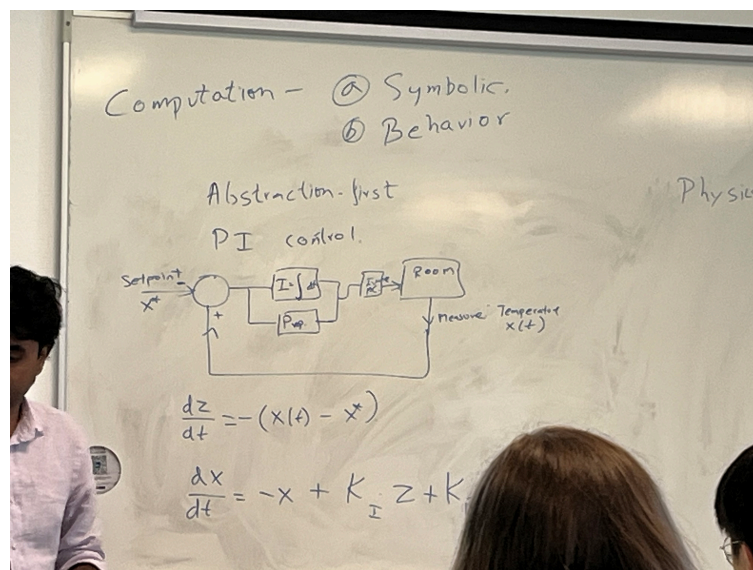 Computation – ⓐ Symbolic.
ⓑ Behavior
Abstraction-first
Physic
PI control.
Setpoint
x*
+
I = ∫ dt
Prop.
Room
measure Temperature
x(t)
dz/dt = -(x(t) - x*)
dx/dt = -x + K_I z + K